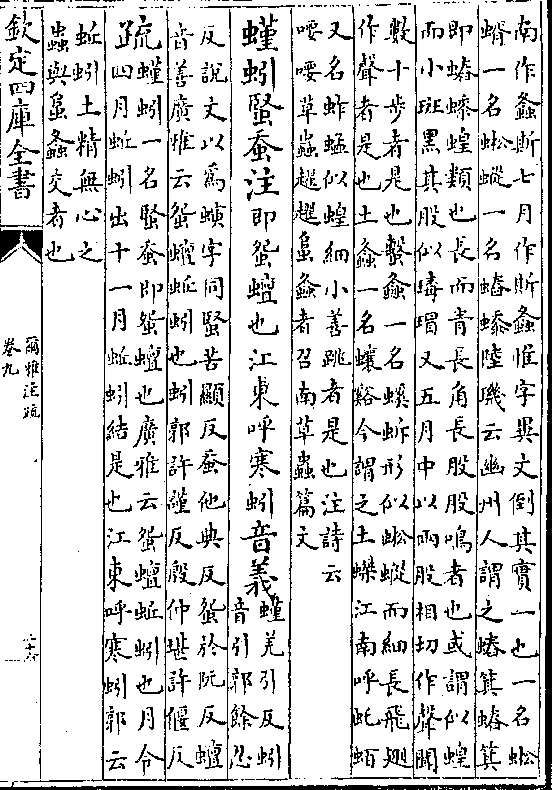 南作螽斯七月作斯螽惟字異文倒其實一也一名蜙
蝑一名蜙䗥一名蝽蟍陸璣云幽州人謂之蝽箕蝽箕
即蝽蟍蝗類也長而青長角長股股鳴者也或謂似蝗
而小斑黑其股似瑇瑁又五月中以兩股相切作聲聞
數十步者是也蟿螽一名螇蚸形似蜙䗥而細長飛翅
作聲者是也土螽一名蠰谿今謂之土蠂江南呼虴蛨
又名蚱蜢似蝗細小善跳者是也注詩云
喓喓草蟲趯趯阜螽者召南草蟲篇文
螼蚓䘆蚕注即䖤蟺也江東呼寒蚓音義螼羌引反蚓
音引郭餘忍
反說文以為螾字同䘆苦顯反蚕他典反䖤於阮反蟺
音善廣雅云䖤蟺蚯蚓也蚓郭許謹反殷仲堪許偃反
疏螼蚓一名䘆蚕即䖤蟺也廣雅云䖤蟺蚯蚓也月令
四月蚯蚓出十一月蚯蚓結是也江東呼寒蚓郭云
蚯蚓土精無心之
蟲與阜螽交者也
欽定四庫全書
爾雅注疏
卷九